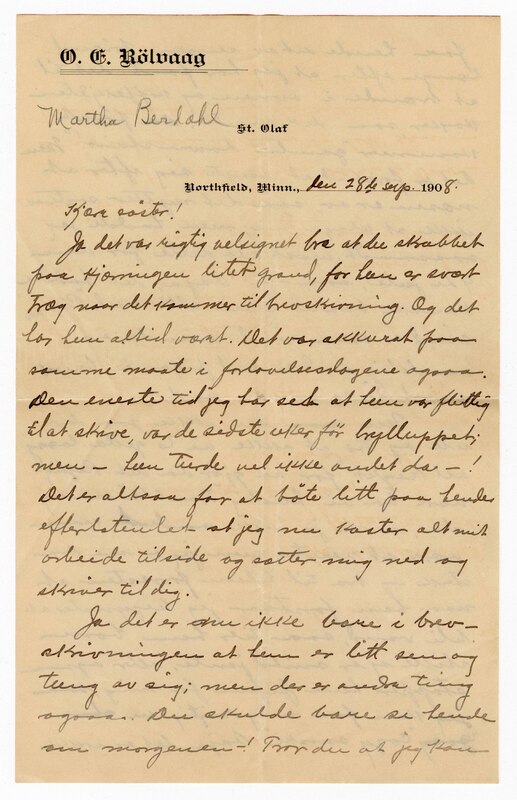 O. E. Rölvaag
Martha Berdahl
St. Olaf
Northfield, Minn., den 28de sep. 1908.
Kjære söster!
Ja det var rigtig velsignet bra at du skrubbet
paa kjærringen litet grand, for hun er svært
træg naar det kommer til brevskrivning. Og det
har hun altid været. Det var akkurat paa
samme maate i forlovelsesdagene ogsaa.
Den eneste tid jeg har set at hun var flittig
til at skrive, var de sidste uker för brylluppet;
men – hun turde vel ikke andet da –!
Det er altsaa for at böte litt paa hendes
at jeg nu kaster alt mit
arbeide tilside og sætter mig ned og
skriver til dig.
Ja det er nu ikke bare i brev-
skrivningen at hun er litt sen og
tung av sig; men der er andre ting
ogsaa. Du skulde bare se hende
om morgenen –! Tror du at jeg kan